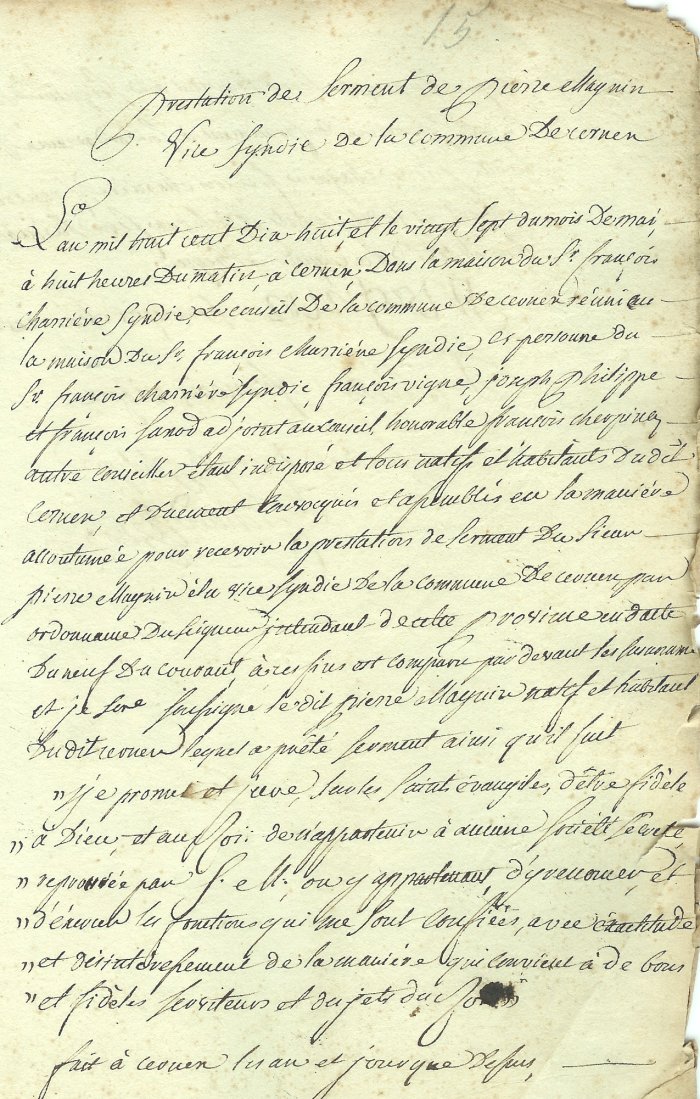 15
Prestation de Serment de Pierre Magnin
Vice Syndic de la Commune De cernex
L'an mil huit cent Dix-huit et le vingt Sept du mois De mai,
à huit heures Du matin, à cernex, Dans la maison du Sr. françois
Charriére Syndic, Le conseil De la commune De cernex réuni au
la maison Du Sr. françois Charriére Syndic, es personne du
Sr. françois charriére Syndic, françois vigne, joseph Philippe
et françois Sanod adjoint au conseil, honorable françois cherpinaz
autre conseiller étant indisposé et tous natifs et habitants Du dit
Cernex, et Duement Convoqués et assemblés en la maniére
accoutumée pour recevoir la prestations de Serment Du Sieur
pierre Magnin élu vice Syndic De la commune De cernex par
ordonnance Du Seigneur jntendant de cette Province en datte
Du neuf Du courant, à ces fins est comparu par devant les
et je Soussigné le dit pierre Magnin natif et habitant
Du dit cernex lequel a prêté serment ainsi qu'il suit
" Je promet et jure, Sur les Saints évangiles, d'être fidèle
" à Dieu, et au Roi: de n'appartenir à aucune Société Secrete,
" reprouvée par S. M., ou y appartenant d'y renoncer, et
" d'éxercer les fonctions qui me sont confiées, avec éxactitude
" et désintéressement de la maniére qui convient à de bons
" et fidèles serviteurs et sujets du Roi
fait à cernex les an et jour que Dessus,